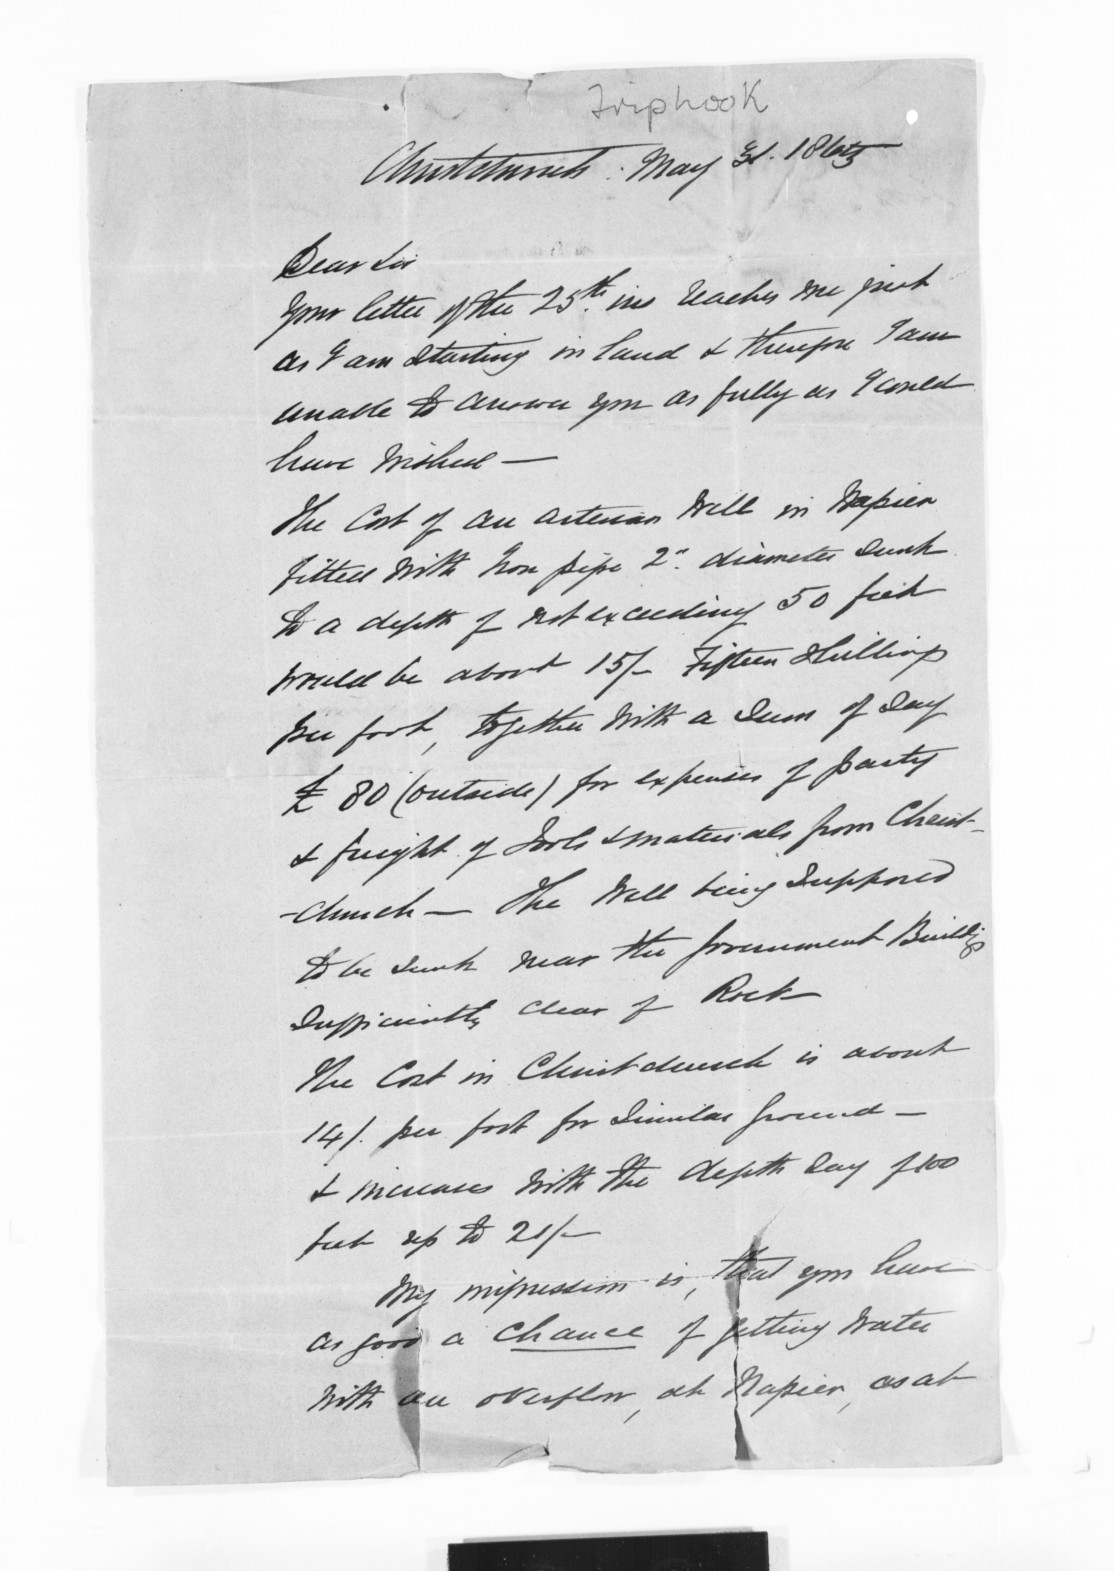 Triphook
Christchurch. May 31. 1865
Dear Sir
Your letter of the 25th. ins reaches me just
as I am starting in land & therefore I am
unable to answer you as fully as I could
have wished —
The Cost of an artesian Well in Napier
fitted with Iron pipe 2". diameter sunk
to a depth of not exceeding 50 feet
would be about 15/- Fifteen Shillings
per foot, together with a Sum of Say
£ 80 (outside) for expenses of party
& freight of Tools & materials from Christ-
-church — The Well being Supposed
to be sunk near the Government Buildgs
Sufficiently clear of Rock
The Cost in Christchurch is about
14/. per foot for Similar ground —
& increases with the depth Say of 100
feet up to 21/-
My impression is, that you have
as good a chance of getting Water
with an overflow, at Napier, as at